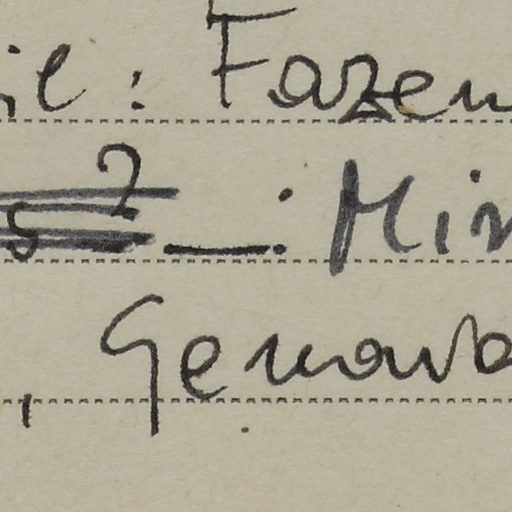 il: Fazen
? —: Min
, Genova